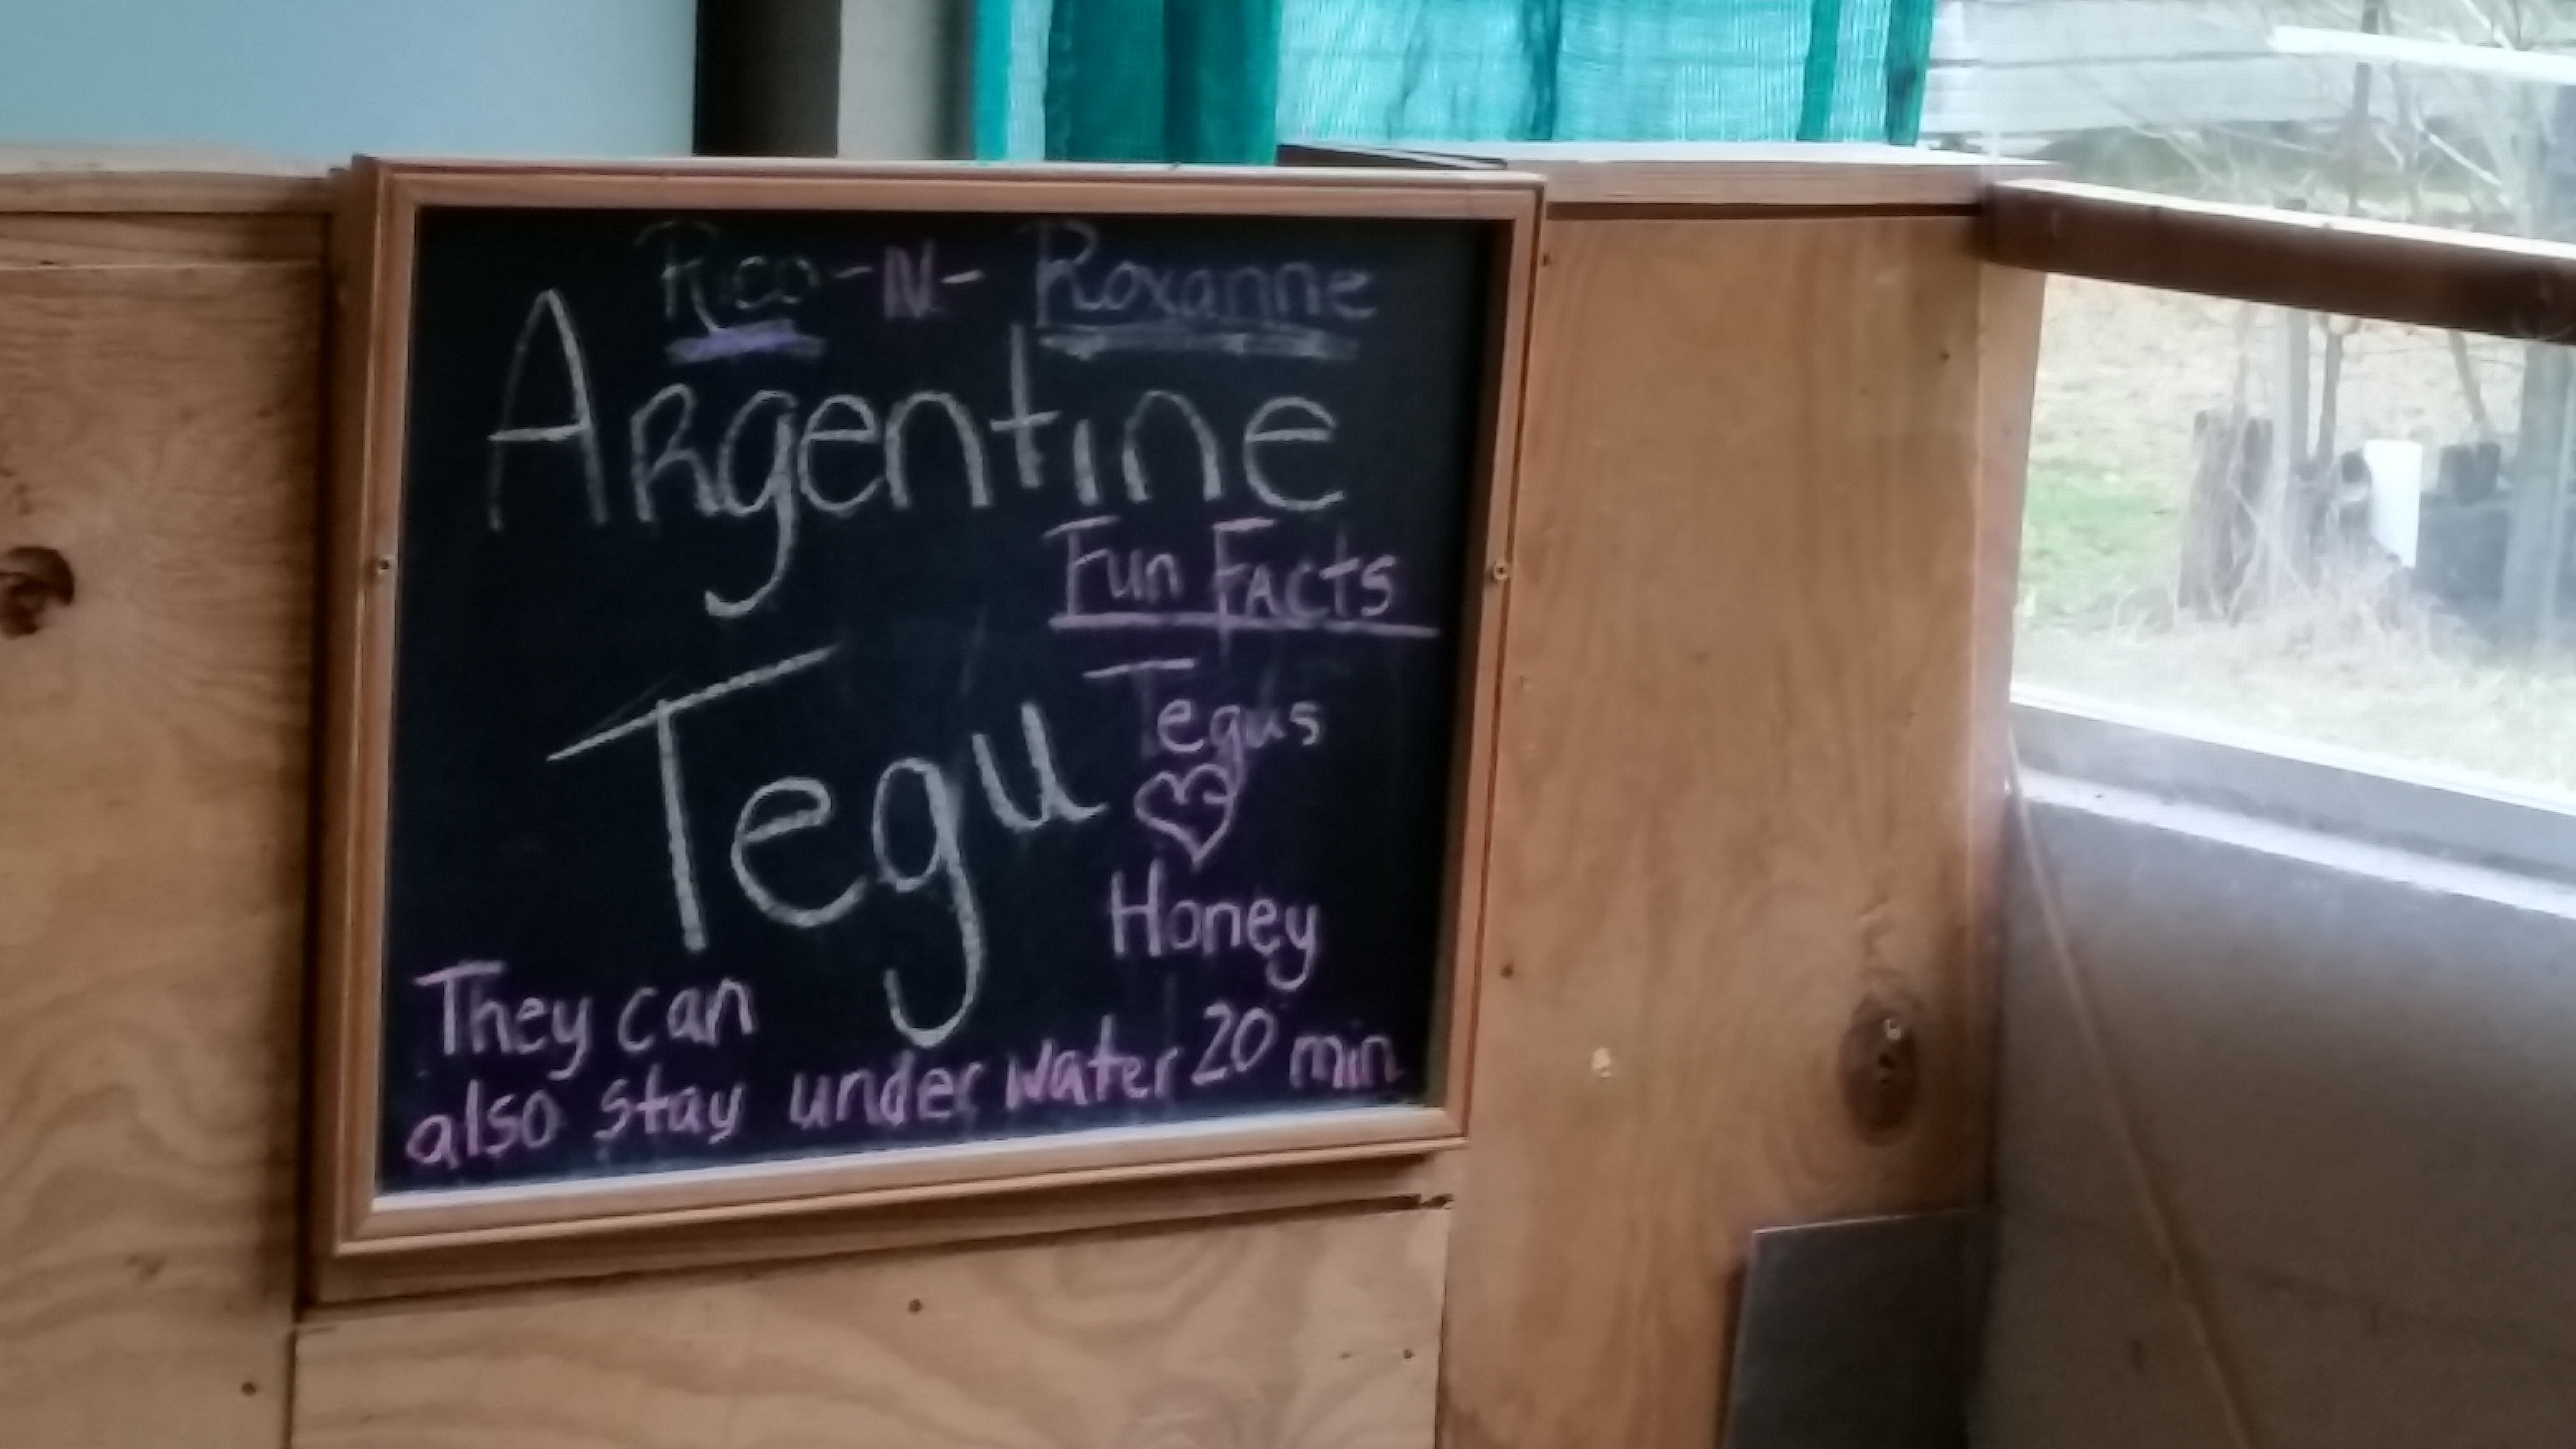 Rico-N-Roxanne
Argentine
Fun Facts
Tegu
Tegus
Honey
They can
also stay under water 20 min